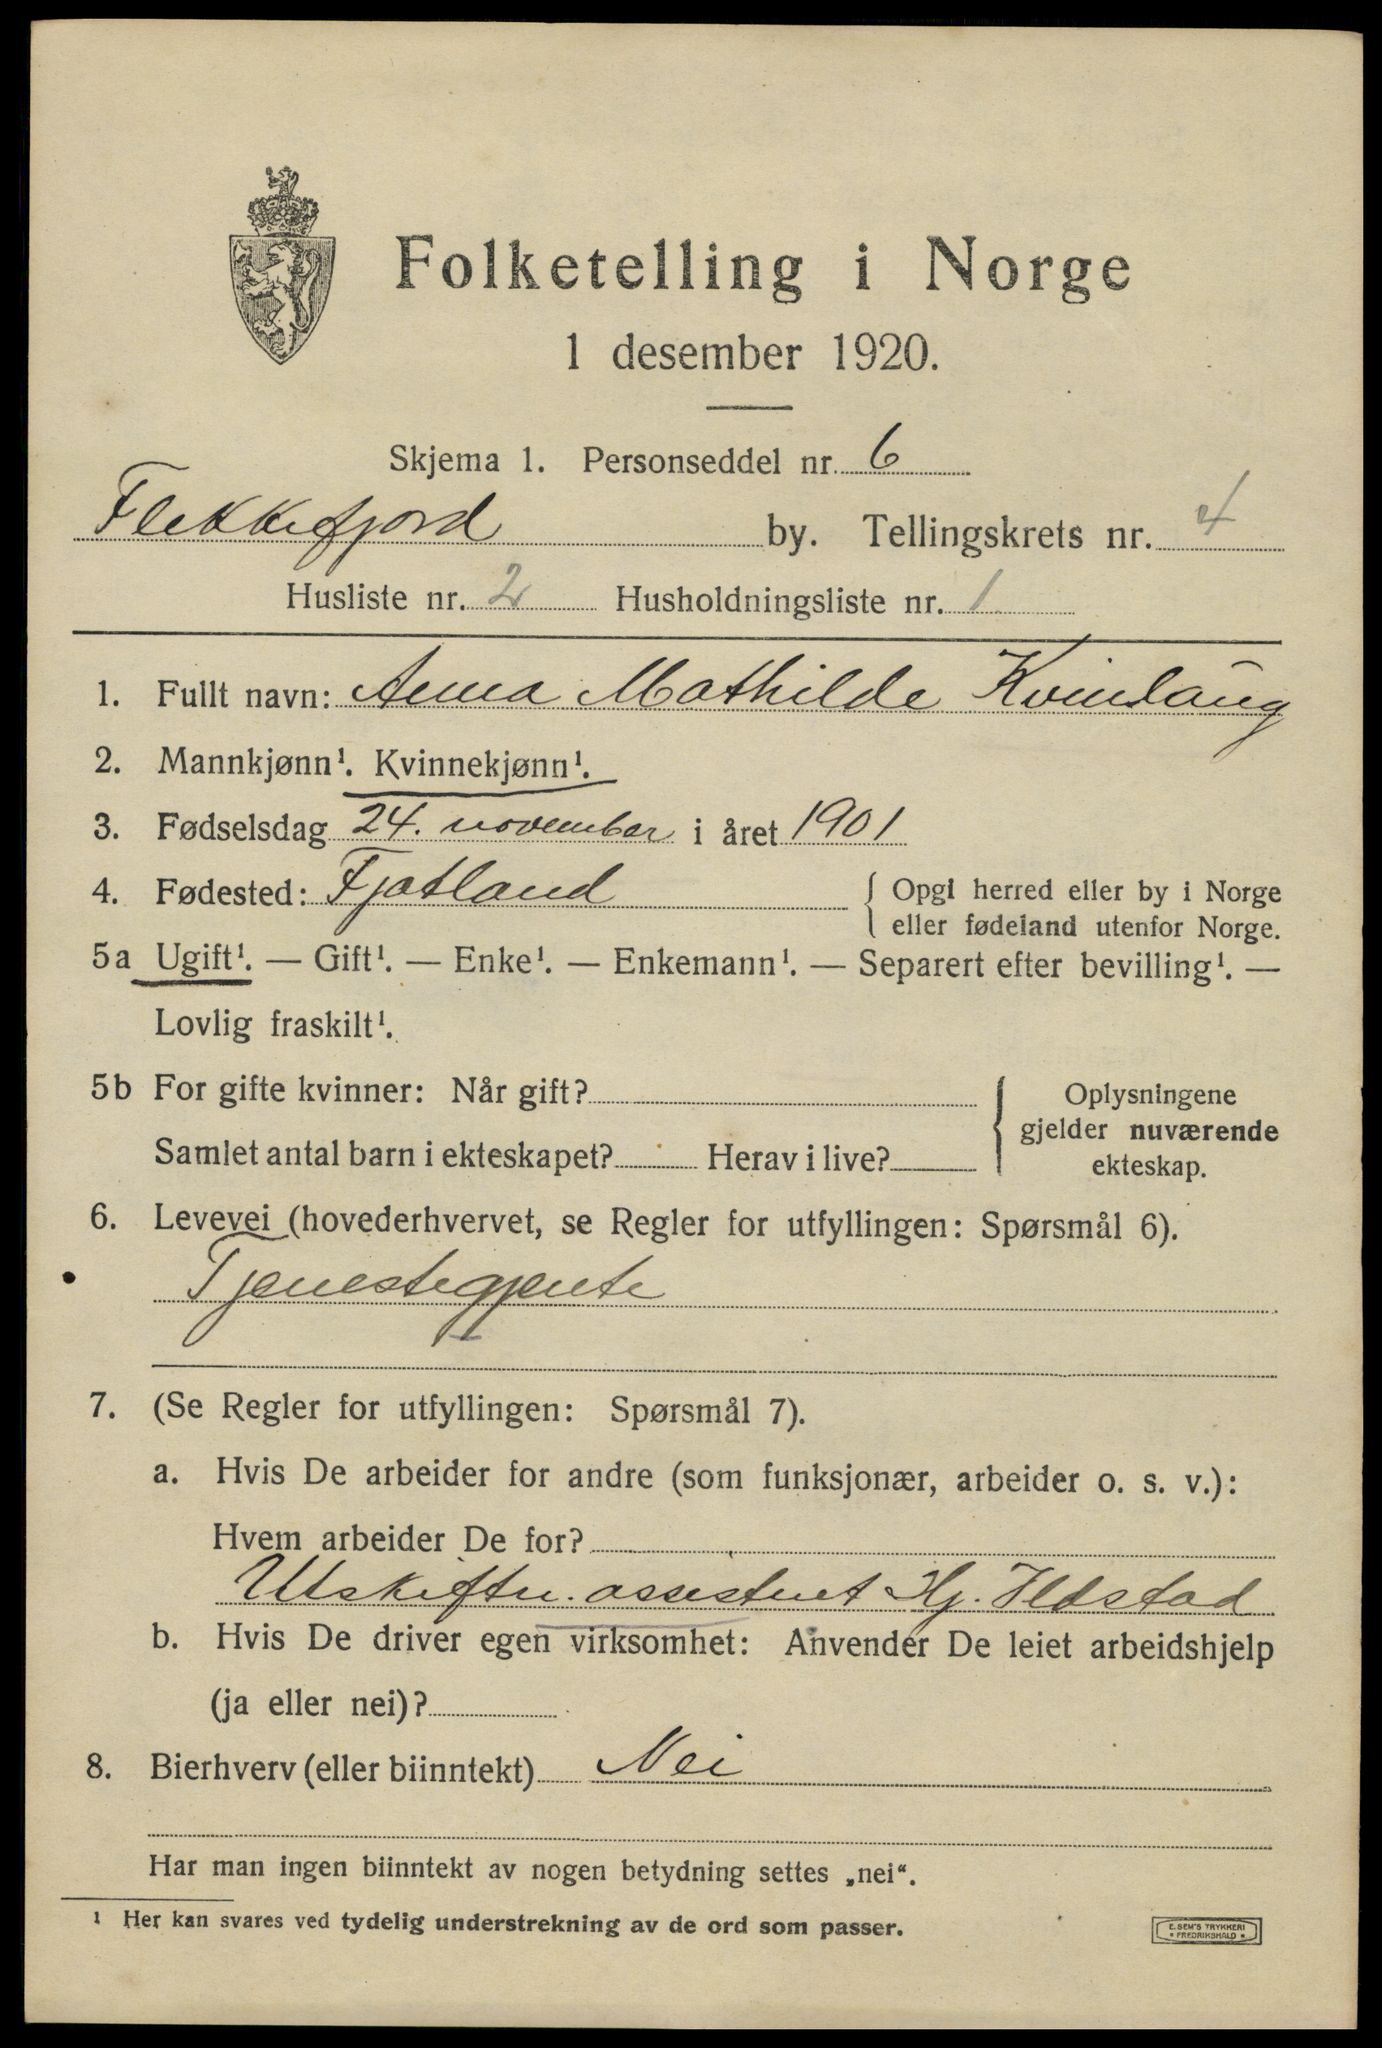 Folketelling i Norge
1 desember 1920.
Skjema 1. Personseddel nr. 6
Flekkefjord by. Tellingskrets nr. 4
Husliste nr. 2 Husholdningsliste nr. 1
1. Fullt navn: Anna Mathilde Kvinlaug
2. Mannkjønn¹. Kvinnekjønn¹.
3. Fødselsdag 24. november i året 1901
4. Fødested: Fjotland { Opgi herred eller by i Norge
eller fødeland utenfor Norge.
5a Ugift¹. — Gift¹. — Enke¹. — Enkemann¹. — Separert efter bevilling¹. —
Lovlig fraskilt¹.
5b For gifte kvinner: Når gift? { Oplysningene
gjelder nuværende
Samlet antal barn i ekteskapet? Herav i live?
ekteskap.
6. Levevei (hovederhvervet, se Regler for utfyllingen: Spørsmål 6).
Tjenestegjente
7. (Se Regler for utfyllingen: Spørsmål 7).
a. Hvis De arbeider for andre (som funksjonær, arbeider o. s. v.):
Hvem arbeider De for?
assistent Hj.
b. Hvis De driver egen virksomhet: Anvender De leiet arbeidshjelp
(ja eller nei)?
8. Bierhverv (eller biinntekt) Nei
Har man ingen biinntekt av nogen betydning settes „nei“.
¹ Her kan svares ved tydelig understrekning av de ord som passer.
E. SEM'S TRYKKERI
* FREDRIKSHALD *